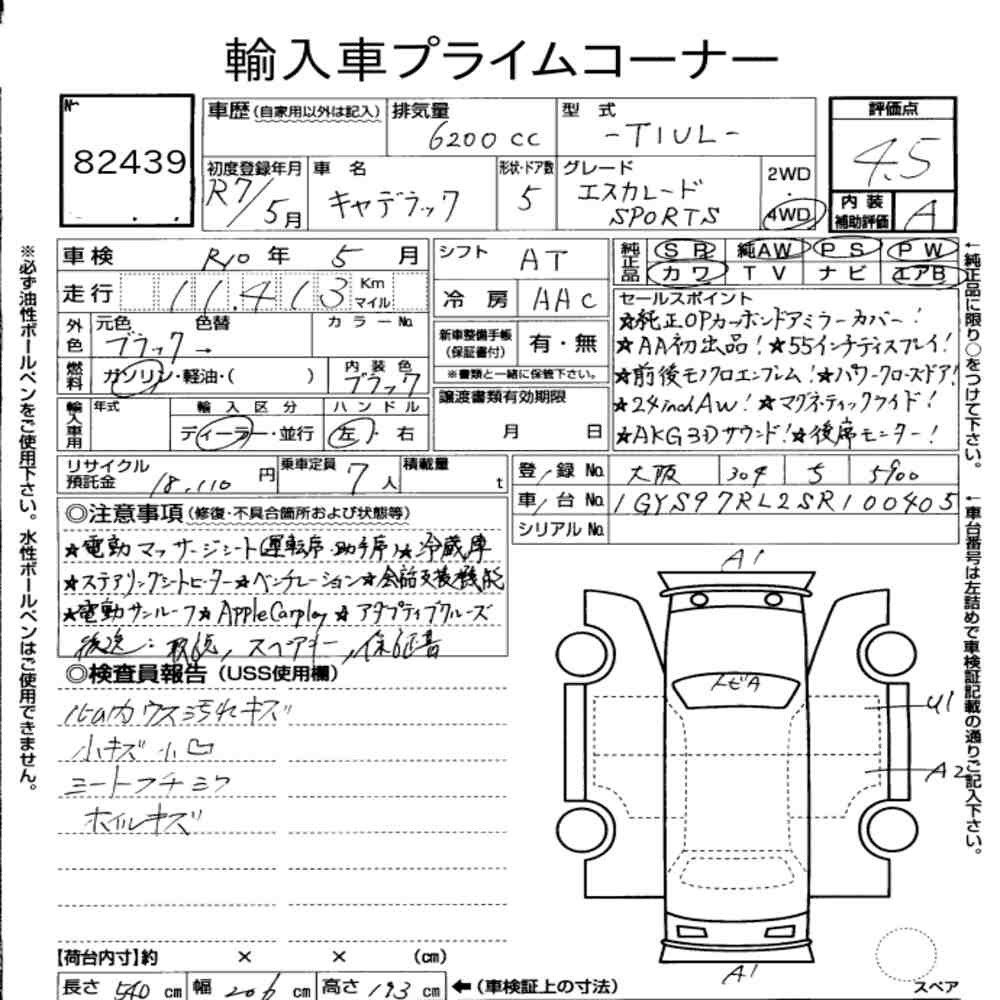 輸入車プライムコーナー
№
82439
車歴(自家用以外は記入)
排気量
6200 cc
型 式
-TIUL-
評価点
4.5
初度登録年月
R7/5月
車 名
キャデラック
形状・ドア数
5
グレード
エスカレード
SPORTS
2WD
・
4WD
内 装
補助評価
A
車検 R10 年 5 月
シフト AT
純正品
SR 純AW PS PW
カワ TV ナビ エアB
走行 11,413 Km マイル
冷房 AAC
外色
元色 色替
ブラック →
カラーNo.
新車整備手帳
(保証書付)
有・無
※書類と一緒に保管下さい。
燃料
ガソリン・軽油・( )
内装色
ブラック
譲渡書類有効期限
月 日
輸入車用
年式
輸入区分
ディーラー・並行
ハンドル
左・右
セールスポイント
★純正OPカーボンドアミラーカバー!
★AA初出品!★55インチディスプレイ!
★前後モノクロエンブレム!★パワークローズドア!
★24inchAW!★マグネティックライド!
★AKG3Dサウンド!★後席モニター!
リサイクル
預託金
18,110 円
乗車定員 7人
積載量 t
登録No. 大阪 304 5 5900
車台No. 1GYS97RL2SR100405
シリアルNo.
◎注意事項(修復・不具合箇所および状態等)
★電動マッサージシート(運転席・助手席)★冷蔵庫
★ステアリングシートヒーター★ベンチレーション★会話支援機能
★電動サンルーフ★AppleCarplay★アダプティブクルーズ
後送:取説,スペアキー,保証書
◎検査員報告(USS使用欄)
内ウス汚れキズ
小キズ小凹
シートフチミワ
ホイルキズ
A1
トビA
U1
A2
A1
スペア
【荷台内寸】約 × × (cm)
長さ 540 cm 幅 206 cm 高さ 193 cm ←(車検証上の寸法)
※必ず油性ボールペンをご使用下さい。水性ボールペンはご使用できません。
←純正品に限り○をつけて下さい。
←車台番号は左詰めで車検証記載の通りご記入下さい。